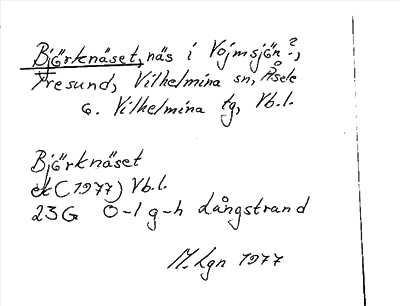 Björknäset, näs i Vojmsjön?,
Fresund, Vilhelmina sn, Åsele
o. Vilhelmina tg, Vb.l.
Björknäset
ek (1977) Vb.l.
23G 0-1 g-h Långstrand
M. Lgn 1977